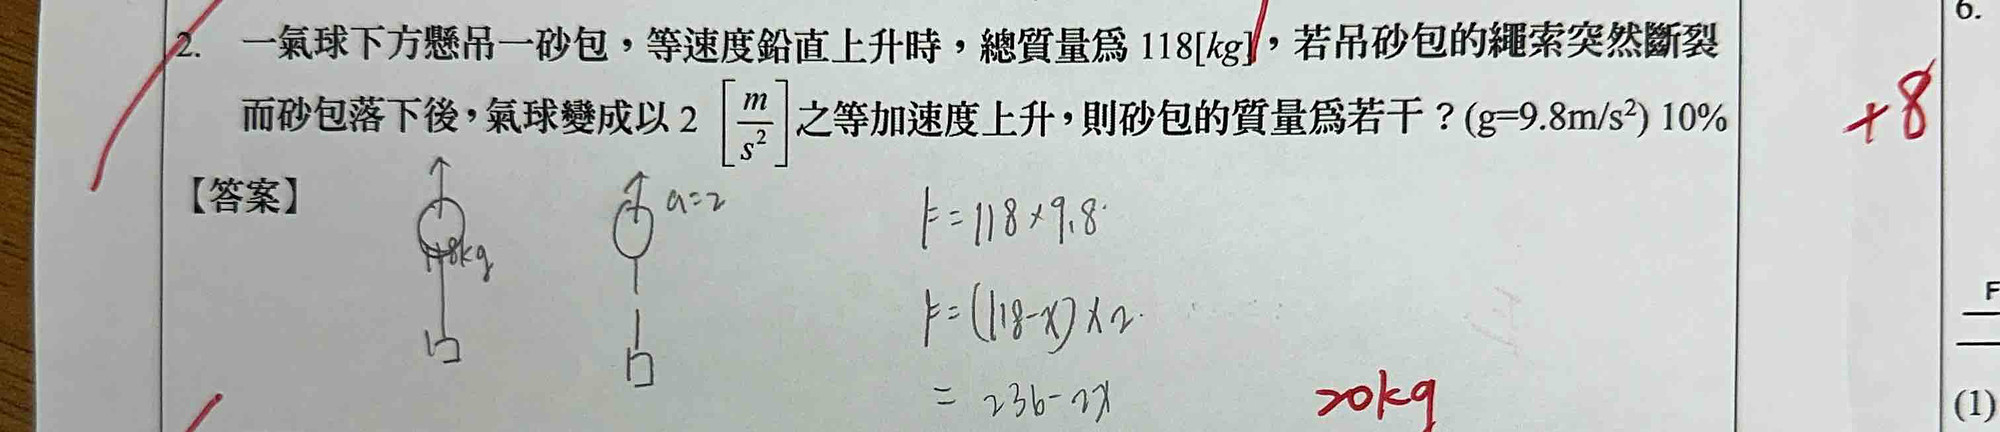 2. 一氣球下方懸吊一砂包，等速度鉛直上升時，總質量爲 118[kg]，若吊砂包的繩索突然斷裂
而砂包落下後，氣球變成以 2 [m/s²] 之等加速度上升，則砂包的質量爲若干？(g=9.8m/s²) 10%
+8
【答案】
118kg
a=2
F=118×9.8
F=(118-x)×2
=236-2x
20kg
6.
F
(1)